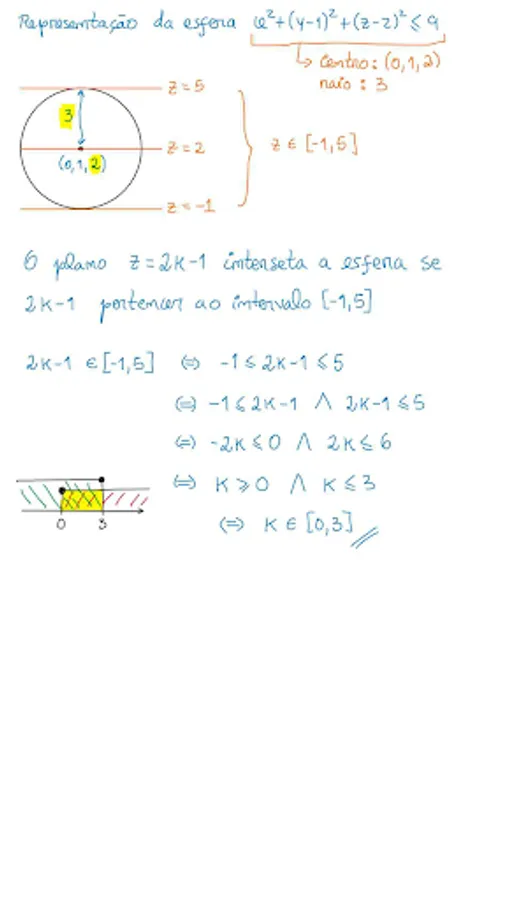 Representação da esfera x²+(y-1)²+(z-2)² ≤ 9
↳ Centro: (0,1,2)
raio: 3
z = 5
3
(0,1,2)
z = 2
z ∈ [-1,5]
z = -1
O plano z = 2k-1 interseta a esfera se
2k-1 pertencer ao intervalo [-1,5]
2k-1 ∈ [-1,5] ⇔ -1 ≤ 2k-1 ≤ 5
⇔ -1 ≤ 2k-1 ∧ 2k-1 ≤ 5
⇔ -2k ≤ 0 ∧ 2k ≤ 6
⇔ k ≥ 0 ∧ k ≤ 3
0 3
⇔ k ∈ [0,3]